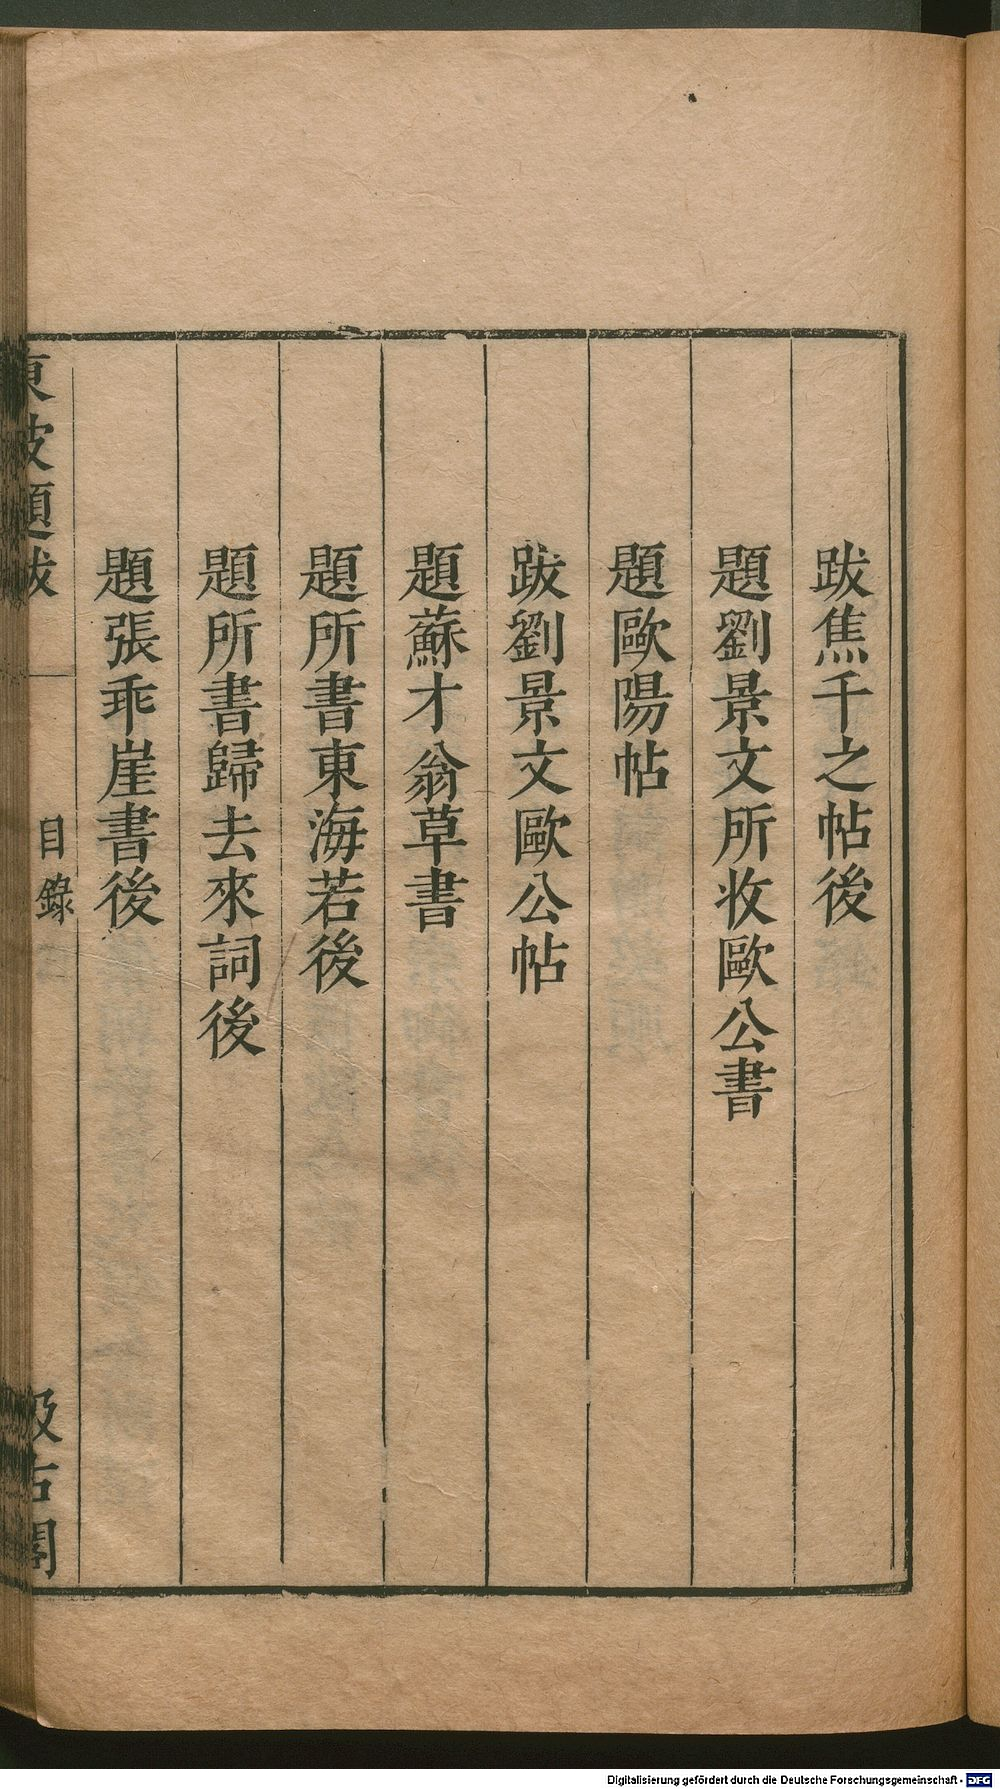 跋焦千之帖後
題劉景文所收歐公書
題歐陽帖
跋劉景文歐公帖
題蘇才翁草書
題所書東海若後
題所書歸去來詞後
題張乖崖書後
東坡題跋
目錄
汲古閣
Digitalisierung gefördert durch die Deutsche Forschungsgemeinschaft - DFG